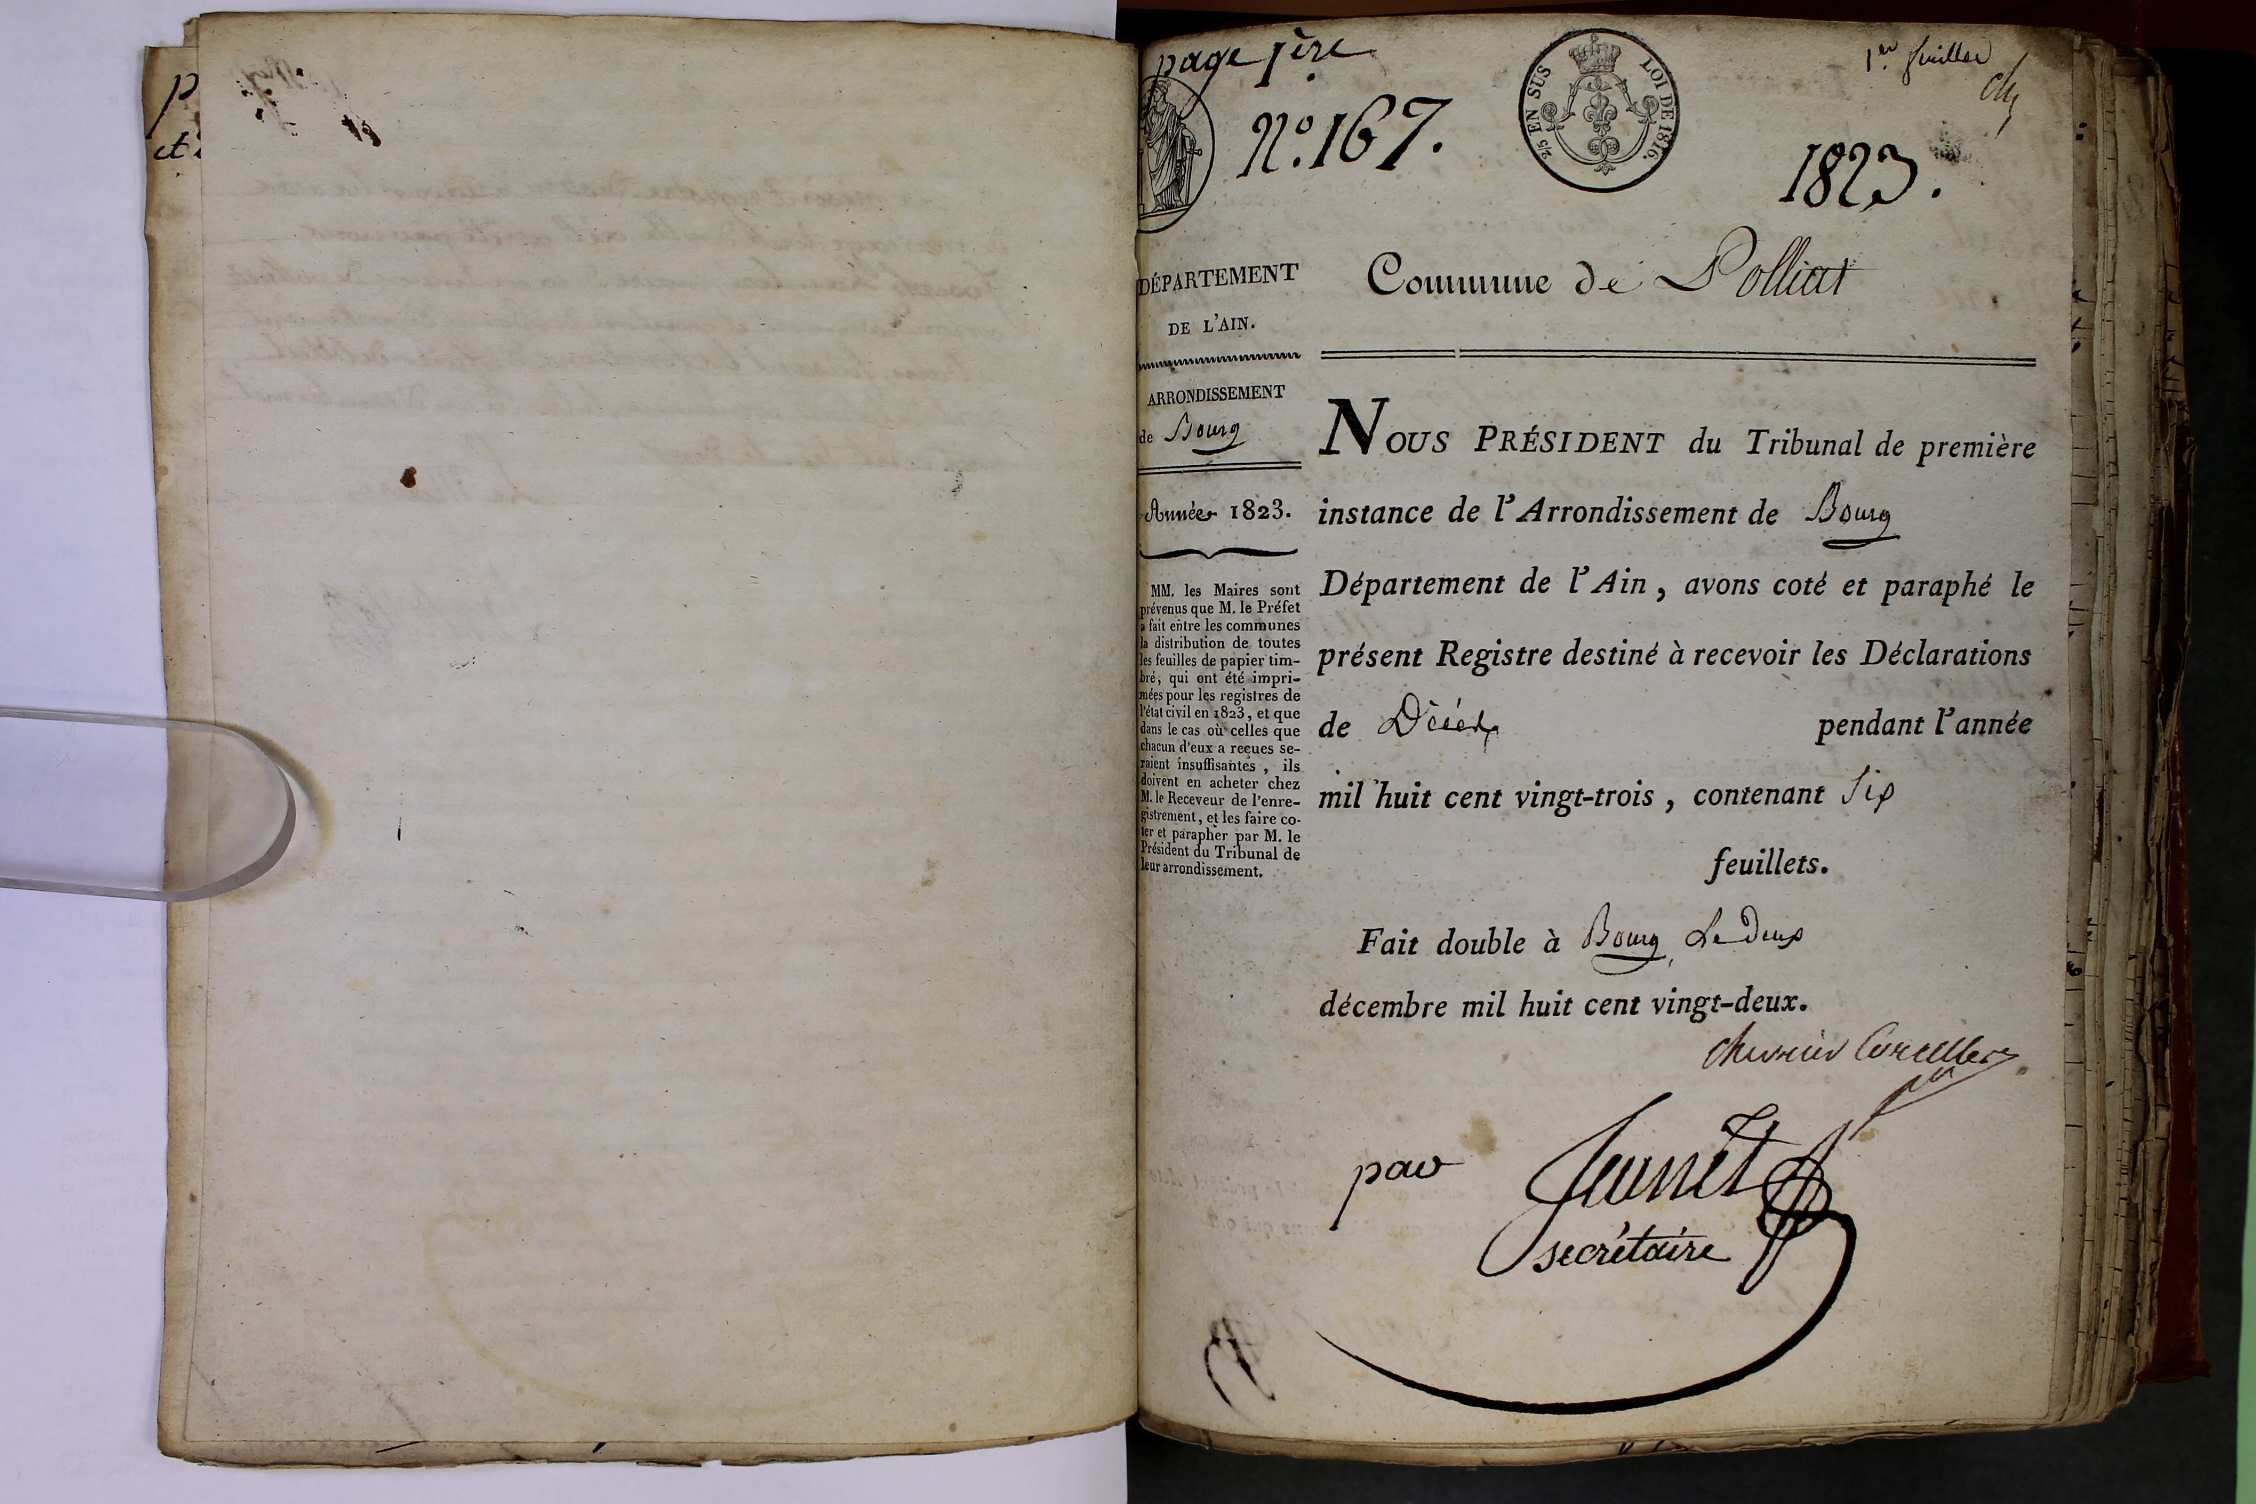 page 1ère
1er feuillet
2/5 EN SUS LOI DE 1816.
N.º 167.
1823.
DÉPARTEMENT
DE L'AIN.
ARRONDISSEMENT
de Bourg
Année 1823.
MM. les Maires sont
prévenus que M. le Préfet
a fait entre les communes
la distribution de toutes
les feuilles de papier tim-
bré, qui ont été impri-
mées pour les registres de
l'état civil en 1823, et que
dans le cas où celles que
chacun d'eux a reçues se-
raient insuffisantes, ils
doivent en acheter chez
M. le Receveur de l'enre-
gistrement, et les faire co-
ter et parapher par M. le
Président du Tribunal de
leur arrondissement.
Commune de Polliat
NOUS PRÉSIDENT du Tribunal de première
instance de l'Arrondissement de Bourg
Département de l'Ain, avons coté et paraphé le
présent Registre destiné à recevoir les Déclarations
de Décès pendant l'année
mil huit cent vingt-trois, contenant Six
feuillets.
Fait double à Bourg, Le Deux
décembre mil huit cent vingt-deux.
Chevrier Corcelles
par Jeunet
secrétaire